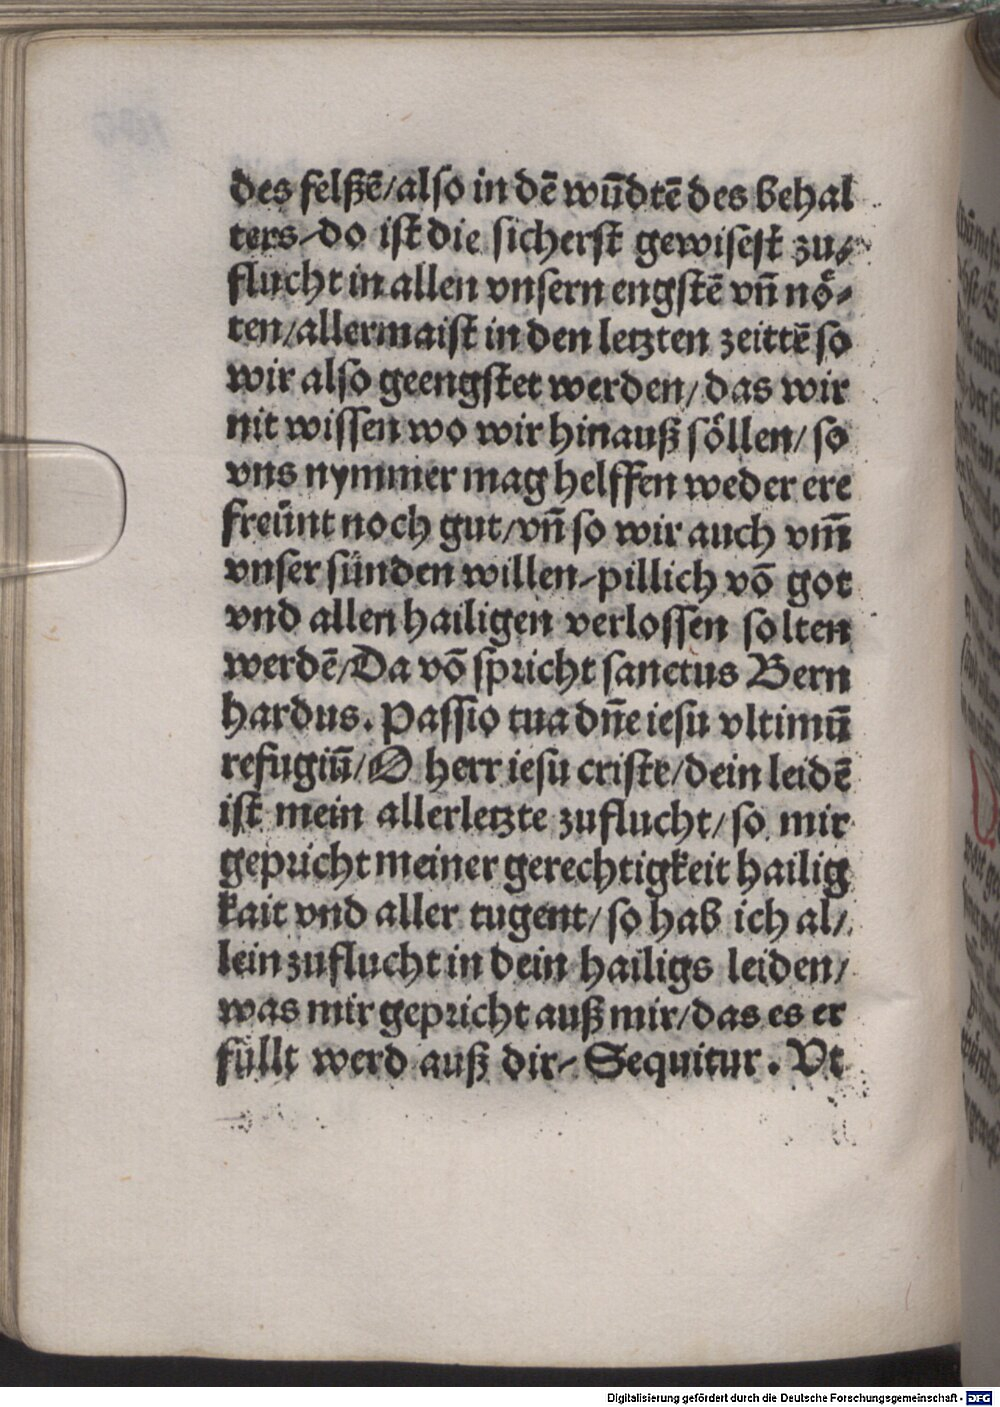 des felßẽ/also in dẽ wũdtẽ des behal
ters/do ist die sicherst gewisest zu/
flucht in allen vnsern engstẽ vñ nö/
ten/allermaist in den letzten zeittẽ so
wir also geengstet werden/das wir
nit wissen wo wir hinauß söllen/so
vns nymmer mag helffen weder ere
freünt noch gut/vñ so wir auch vm̃
vnser sünden willen/pillich võ got
vnd allen hailigen verlossen solten
werdẽ/Da võ spricht sanctus Bern
hardus. Passio tua dñe iesu vltimũ
refugiũ/O herr iesu criste/dein leidẽ
ist mein allerletzte zuflucht/so mir
gepricht meiner gerechtigkeit hailig
kait vnd aller tugent/so hab ich al/
lein zuflucht in dein hailigs leiden/
was mir gepricht auß mir/das es er
füllt werd auß dir/Sequitur. Vt
Digitalisierung gefördert durch die Deutsche Forschungsgemeinschaft - DFG